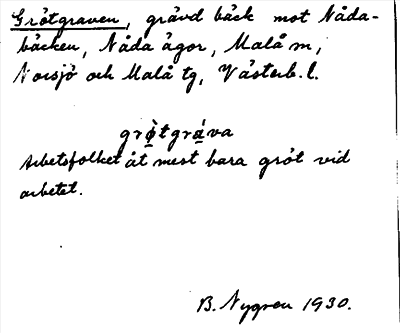 Grötgraven, grävd bäck mot Nåda-
bäcken, Nåda ägor, Malå sn,
Norsjö och Malå tg, Västerb. l.
grø̀tgrá̱va
Arbetsfolket åt mest bara gröt vid
arbetet.
B. Nygren 1930.